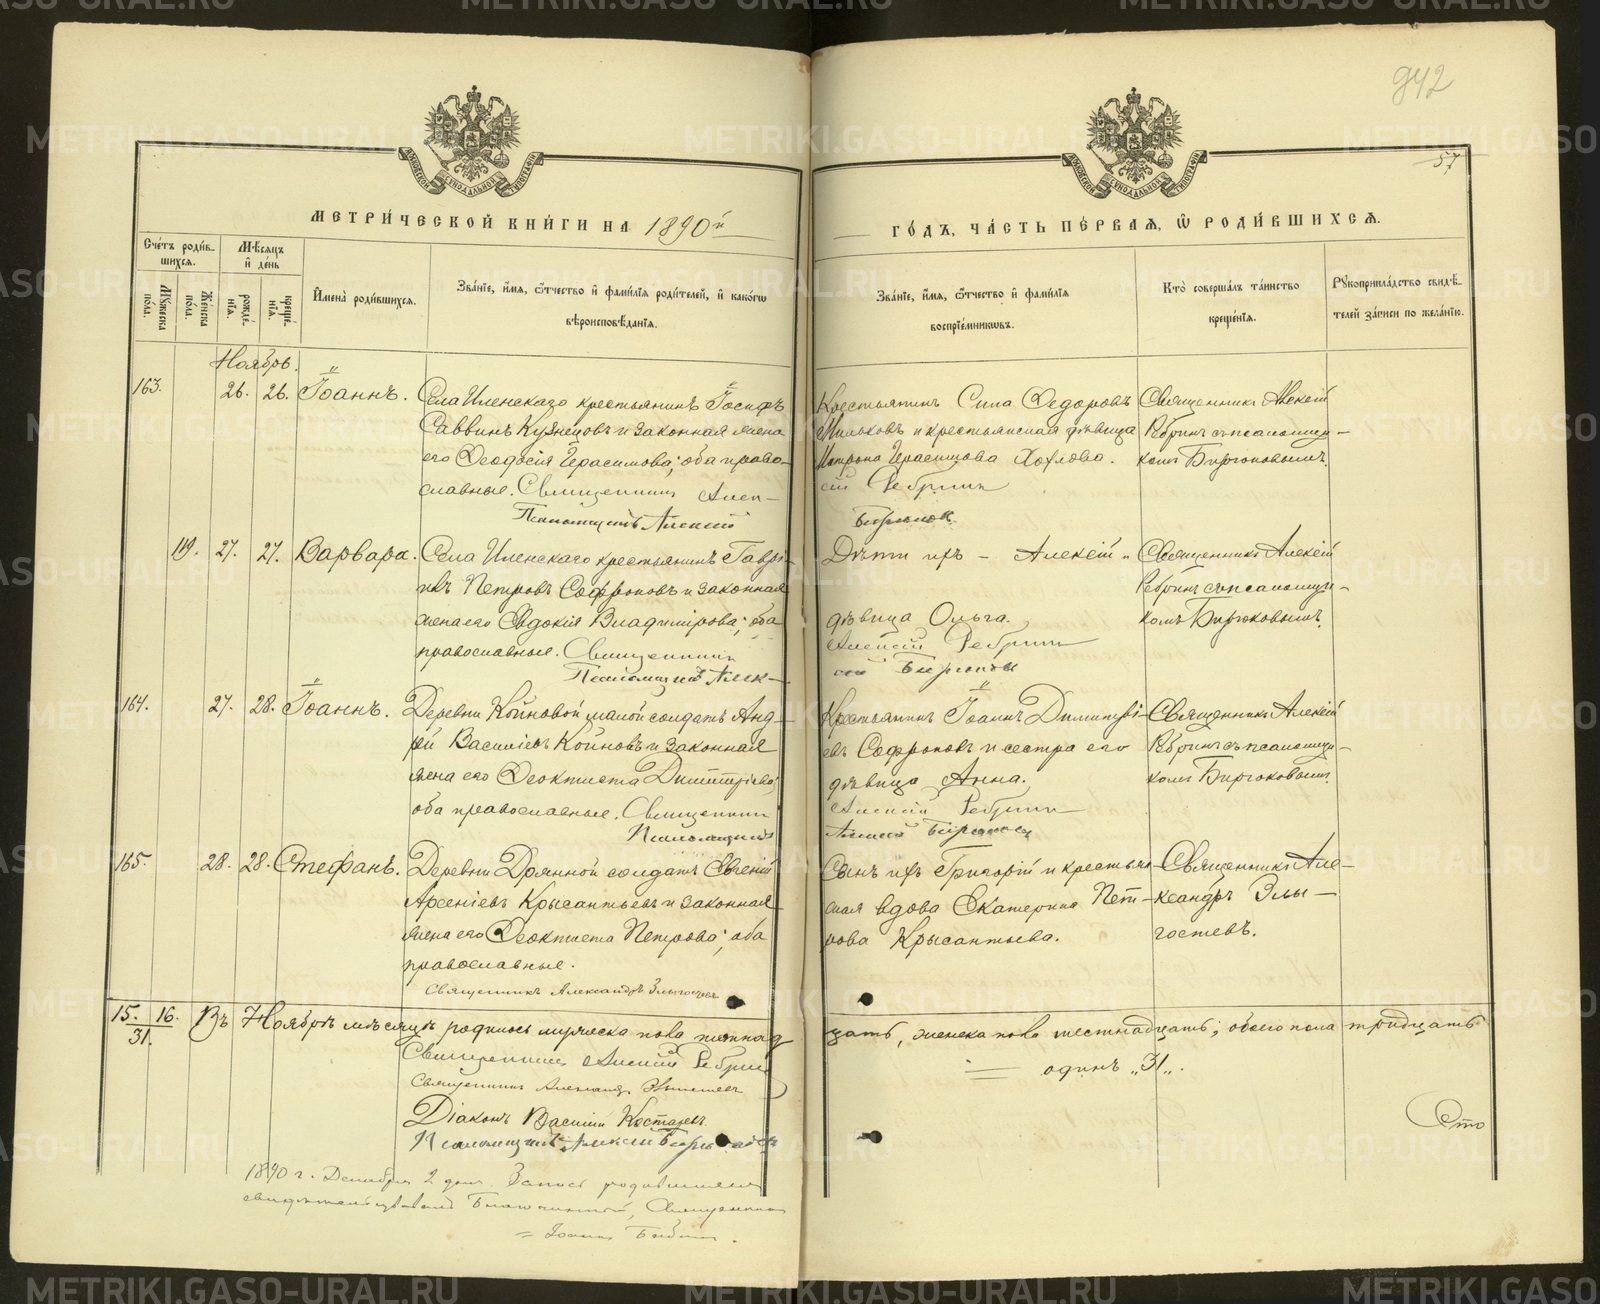 942
57
МЕТРИ́ЧЕСКОЙ КНИ́ГИ НА 1890й ГО́ДЪ, ЧА́СТЬ ПЕ́РВАѦ, Ѽ РОДИ́ВШИХСѦ.
Сче́тъ роди́в-
шихсѧ.
Мꙋжеска по́ла.
Же́нска по́ла.
Мѣ́сѧцъ и҆ де́нь
рожде́нїѧ.
креще́нїѧ.
И҆мена̀ роди́вшихсѧ.
Зва́нїе, и҆́мѧ, ѻ҆́тчество и҆ фами́лїѧ роди́телей, и҆ како́гѡ
вѣроисповѣ́данїѧ.
Зва́нїе, и҆́мѧ, ѻ҆́тчество и҆ фами́лїѧ
воспрїе́мникѡвъ.
Кто̀ соверша́лъ та́инство
креще́нїѧ.
Рꙋкоприкла́дство свидѣ́-
телей за́писи по жела́нїю.
Ноябрь.
163.
26. 26. Іоаннъ.
Села Иленскаго крестьянинъ Іосифъ
Саввинъ Кузнецовъ и законная жена
его Ѳеодосія Герасимова; оба право-
славные. Священникъ Алек-
Псаломщикъ Алексѣй
Крестьянинъ Сила Ѳедоровъ
Мильковъ и крестьянская дѣвица
Матрона Герасимова Хохлова.
сій Ребринъ
Бирюковъ
Священникъ Алексій
Ребринъ съ псаломщи-
комъ Бирюковымъ.
119. 27. 27. Варвара.
Села Иленскаго крестьянинъ Гаврі-
илъ Петровъ Софроновъ и законная
жена его Евдокія Владимірова; оба
православные. Священникъ
Псаломщикъ Алек-
Дѣти ихъ - Алексій и
дѣвица Ольга.
Алексій Ребринъ
сій Бирюковъ
Священникъ Алексій
Ребринъ съ псаломщи-
комъ Бирюковымъ.
164. 27. 28. Іоаннъ.
Деревни Койновой малой солдатъ Анд-
рей Васильевъ Койновъ и законная
жена его Ѳеоктиста Димитріева;
оба православные. Священникъ
Псаломщикъ
Крестьянинъ Іоаннъ Димитрі-
евъ Софроновъ и сестра его
дѣвица Анна.
Алексій Ребринъ
Алексій Бирюковъ
Священникъ Алексій
Ребринъ съ псаломщи-
комъ Бирюковымъ.
165. 28. 28. Стефанъ.
Деревни Дрянной солдатъ Евгеній
Арсеніевъ Крысантьевъ и законная
жена его Ѳеоктиста Петрова; оба
православные.
Священникъ Александръ Злыгостевъ
Сынъ ихъ Григорій и крестьян-
ская вдова Екатерина Пет-
рова Крысантьева.
Священникъ Але-
ксандръ Злы-
гостевъ.
15. 16. Въ Ноябрѣ мѣсяцѣ родилось мужеска пола пятнад
цать, женска пола шестнадцать; обоего пола тридцать
31.
одинъ „31„.
Священникъ Алексій Ребринъ
Священникъ Александръ Злыгостевъ
Діаконъ Василій Костаревъ.
Псаломщикъ Алексій Бирюковъ
Сто
1890 г. Декабря 2 дня. Запись родившихся
свидѣтельствовалъ Благочинный, Священникъ
= Іоаннъ
METRIKI.GASO-URAL.RU